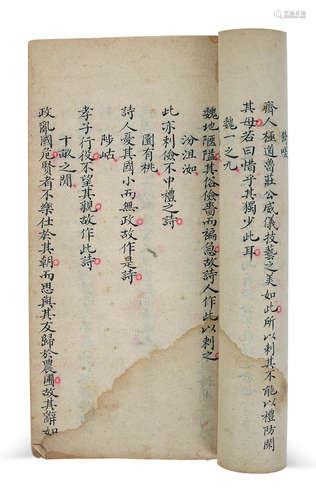 猗嗟
齊人極道魯莊公威儀技藝之美如此所以刺其不能以禮防閑
其母若曰惜乎其獨少此耳
魏一之九
魏地陿隘其俗儉嗇而褊急故詩人作此以刺之
汾沮洳
此亦刺儉不中禮之詩
園有桃
詩人憂其國小而無政故作是詩
陟岵
孝子行役不忘其親故作此詩
十畝之閒
政亂國危賢者不樂仕於其朝而思與其友歸於農圃故其辭如